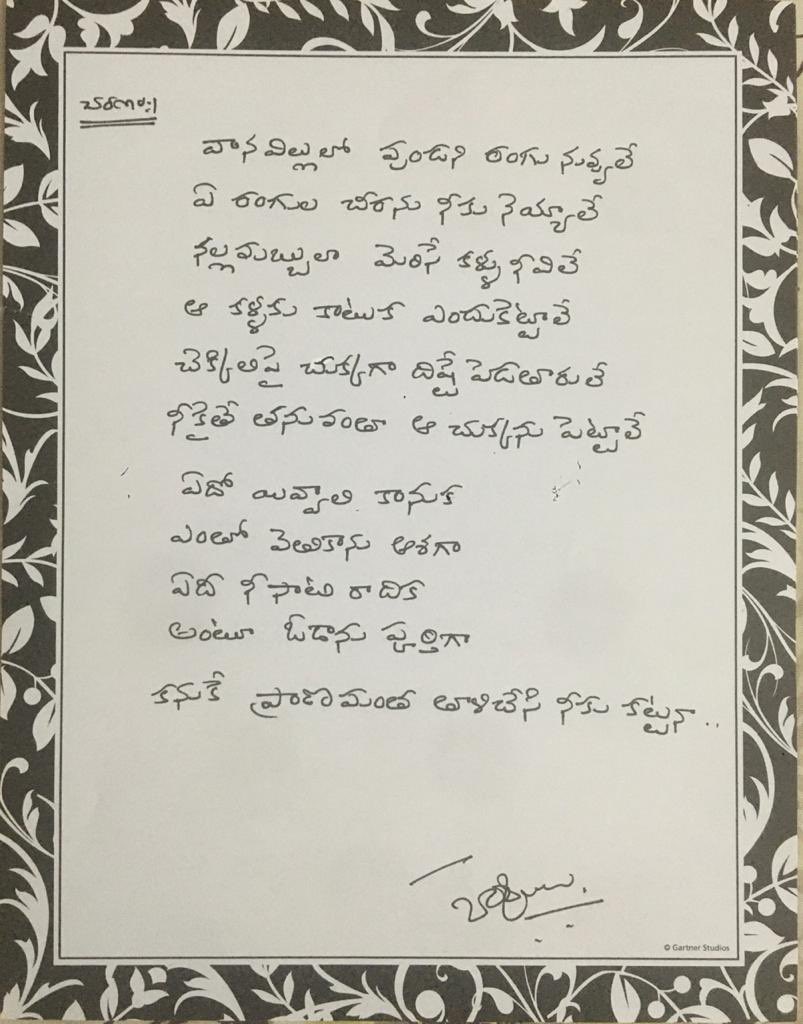 చరణం:1
వానవిల్లులో వుండని రంగు నువ్వులే
ఏ రంగుల చీరను నీకు నెయ్యాలే
నల్లమబ్బులా మెరిసే కళ్ళు నీవిలే
ఆ కళ్ళకు కాటుక ఎందుకెట్టాలే
చెక్కిలిపై చుక్కగా దిష్టే పెడతారులే
నీకైతే తనువంతా ఆ చుక్కను పెట్టాలే
ఏదో యివ్వాలి కానుక
ఎంతో వెతికాను ఆశగా
ఏదీ నీ సాటి రాదిక
అంటూ ఓడాను పూర్తిగా
కనుకే ప్రాణమంత తాళిచేసి నీకు కట్టనా..
© Gartner Studios